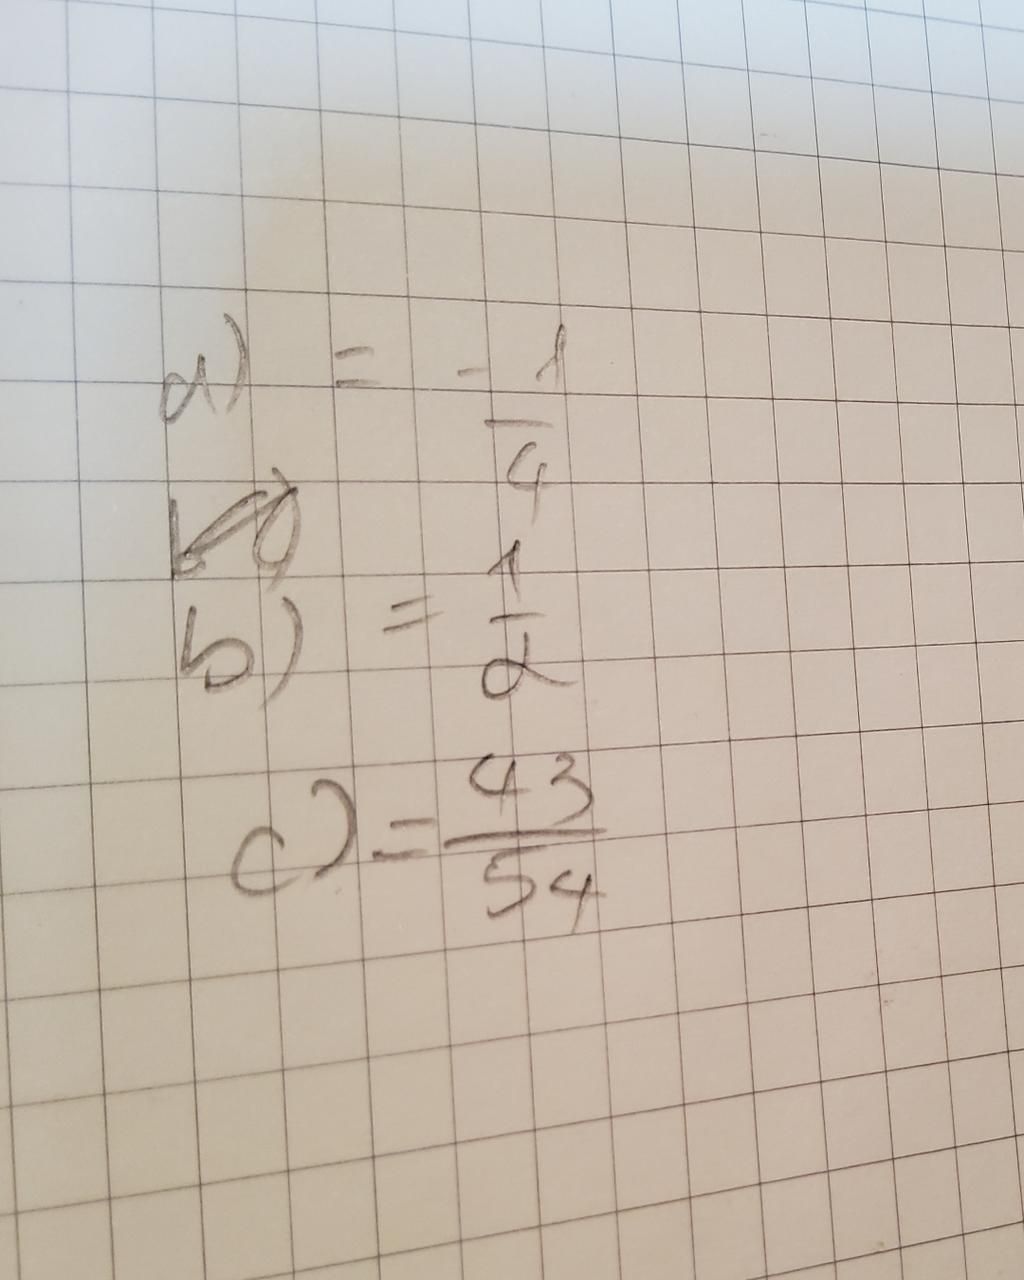 a) = -1/4
b) = 1/2
c) = 43/54